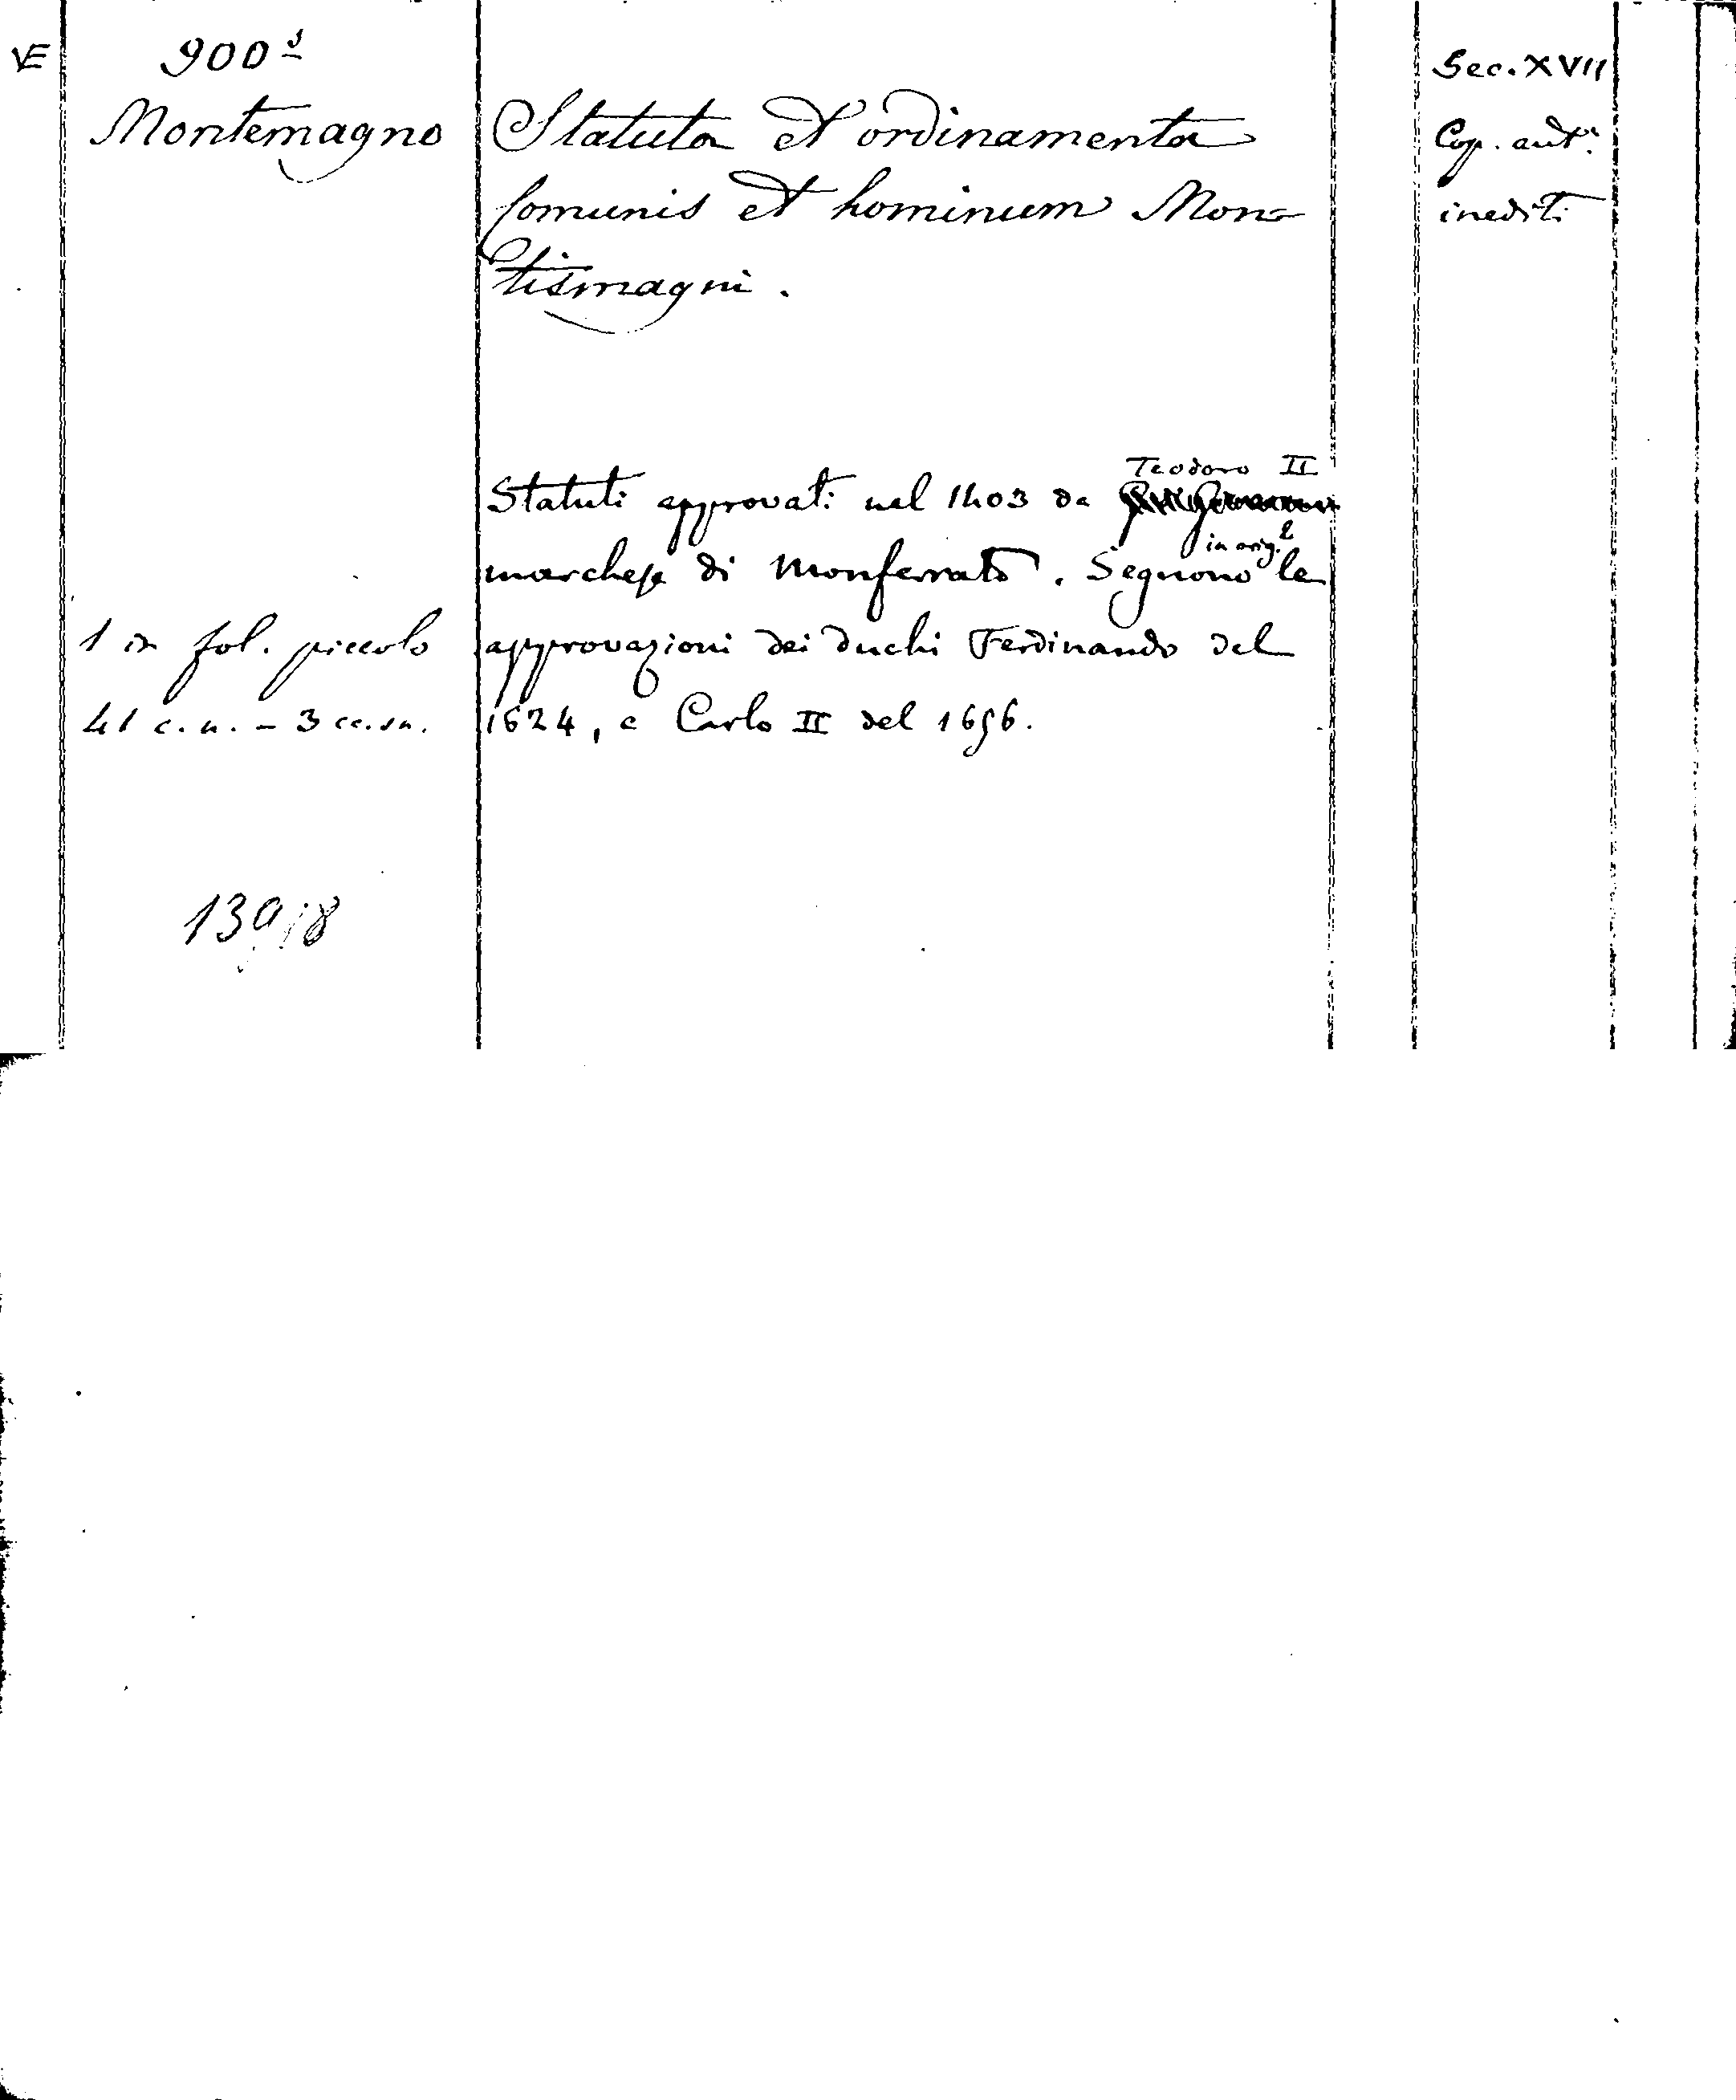 VE
900
Montemagno
Statuta et ordinamenta
Comunis et hominum Mon-
tismagni.
Sec. XVII
Cop. aut.
inediti
Teodoro II
Statuti approvati nel 1403 da
in orig.e
marchese di Monferrato. Seguono le
approvazioni dei duchi Ferdinando del
1624, e Carlo II del 1656.
1 in fol. piccolo
41 c. n. - 3 cc. sn.